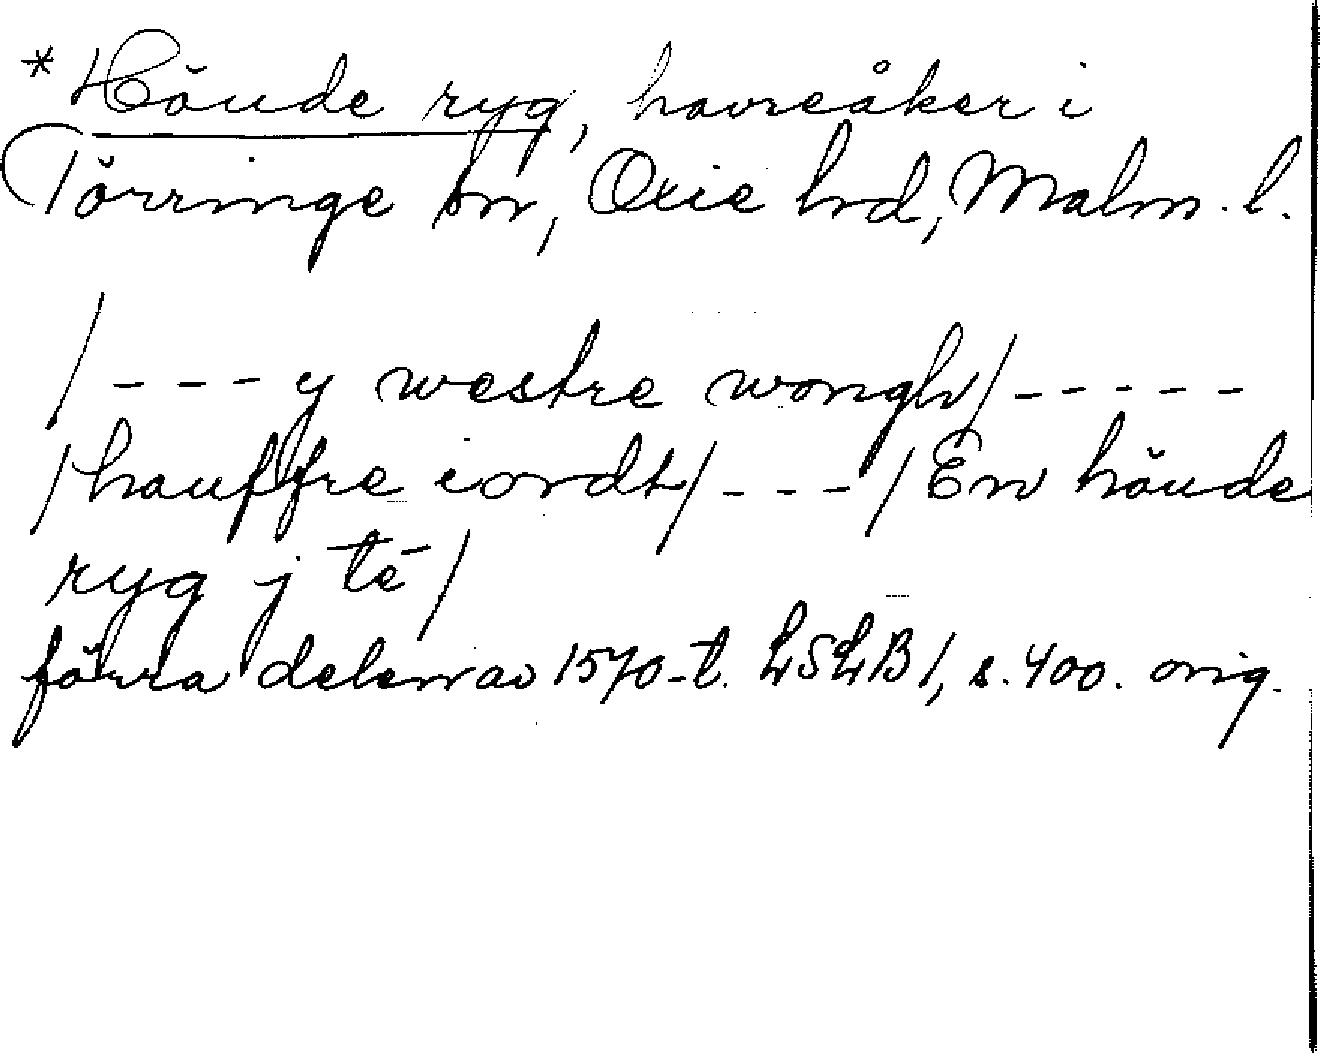 *Höude ryg, havreåker i
Törringe sn, Oxie hrd, Malm. l.
/ - - - y westre wongh / - - - - -
/ hauffre iordt / - - - / En höude
ryg j té /
förra delen av 1570-t. LSLB 1, s. 400. orig.